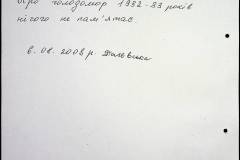 Про голодомор 1932-33 років
нічого не пам'ятає.
в. 08. 2008 р.